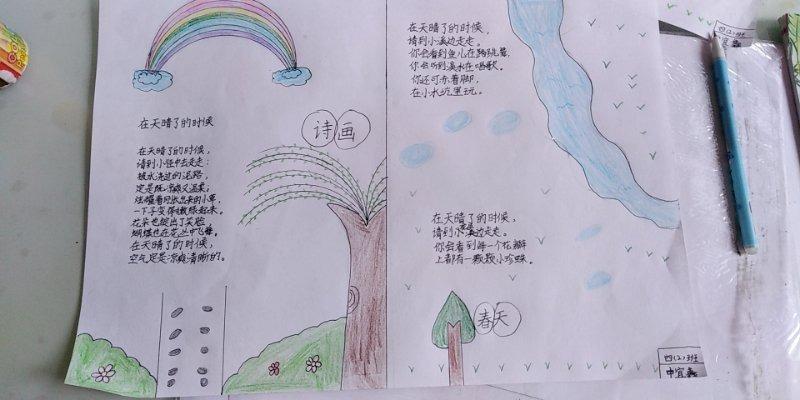 在天晴了的时候
诗画
在天晴了的时候,
请到小径中去走走:
被水浇过的泥路,
定是既凉爽又温柔,
炫耀着
的小草,
一下子变得嫩绿起来。
花朵也绽出了笑脸
蝴蝶也在花丛中飞舞。
在天晴了的时候,
空气定是凉爽清晰的。
在天晴了的时候,
请到小溪边走走。
你会看到鱼儿在跳舞,
你会听到溪水在唱歌。
你还可赤着脚,
在小水坑里玩。
在天晴了的时候,
请到小溪边走走。
你会看到每一个花瓣
上都有一颗颗小珍珠。
春天
四(2)班
申宜鑫
四(2)班